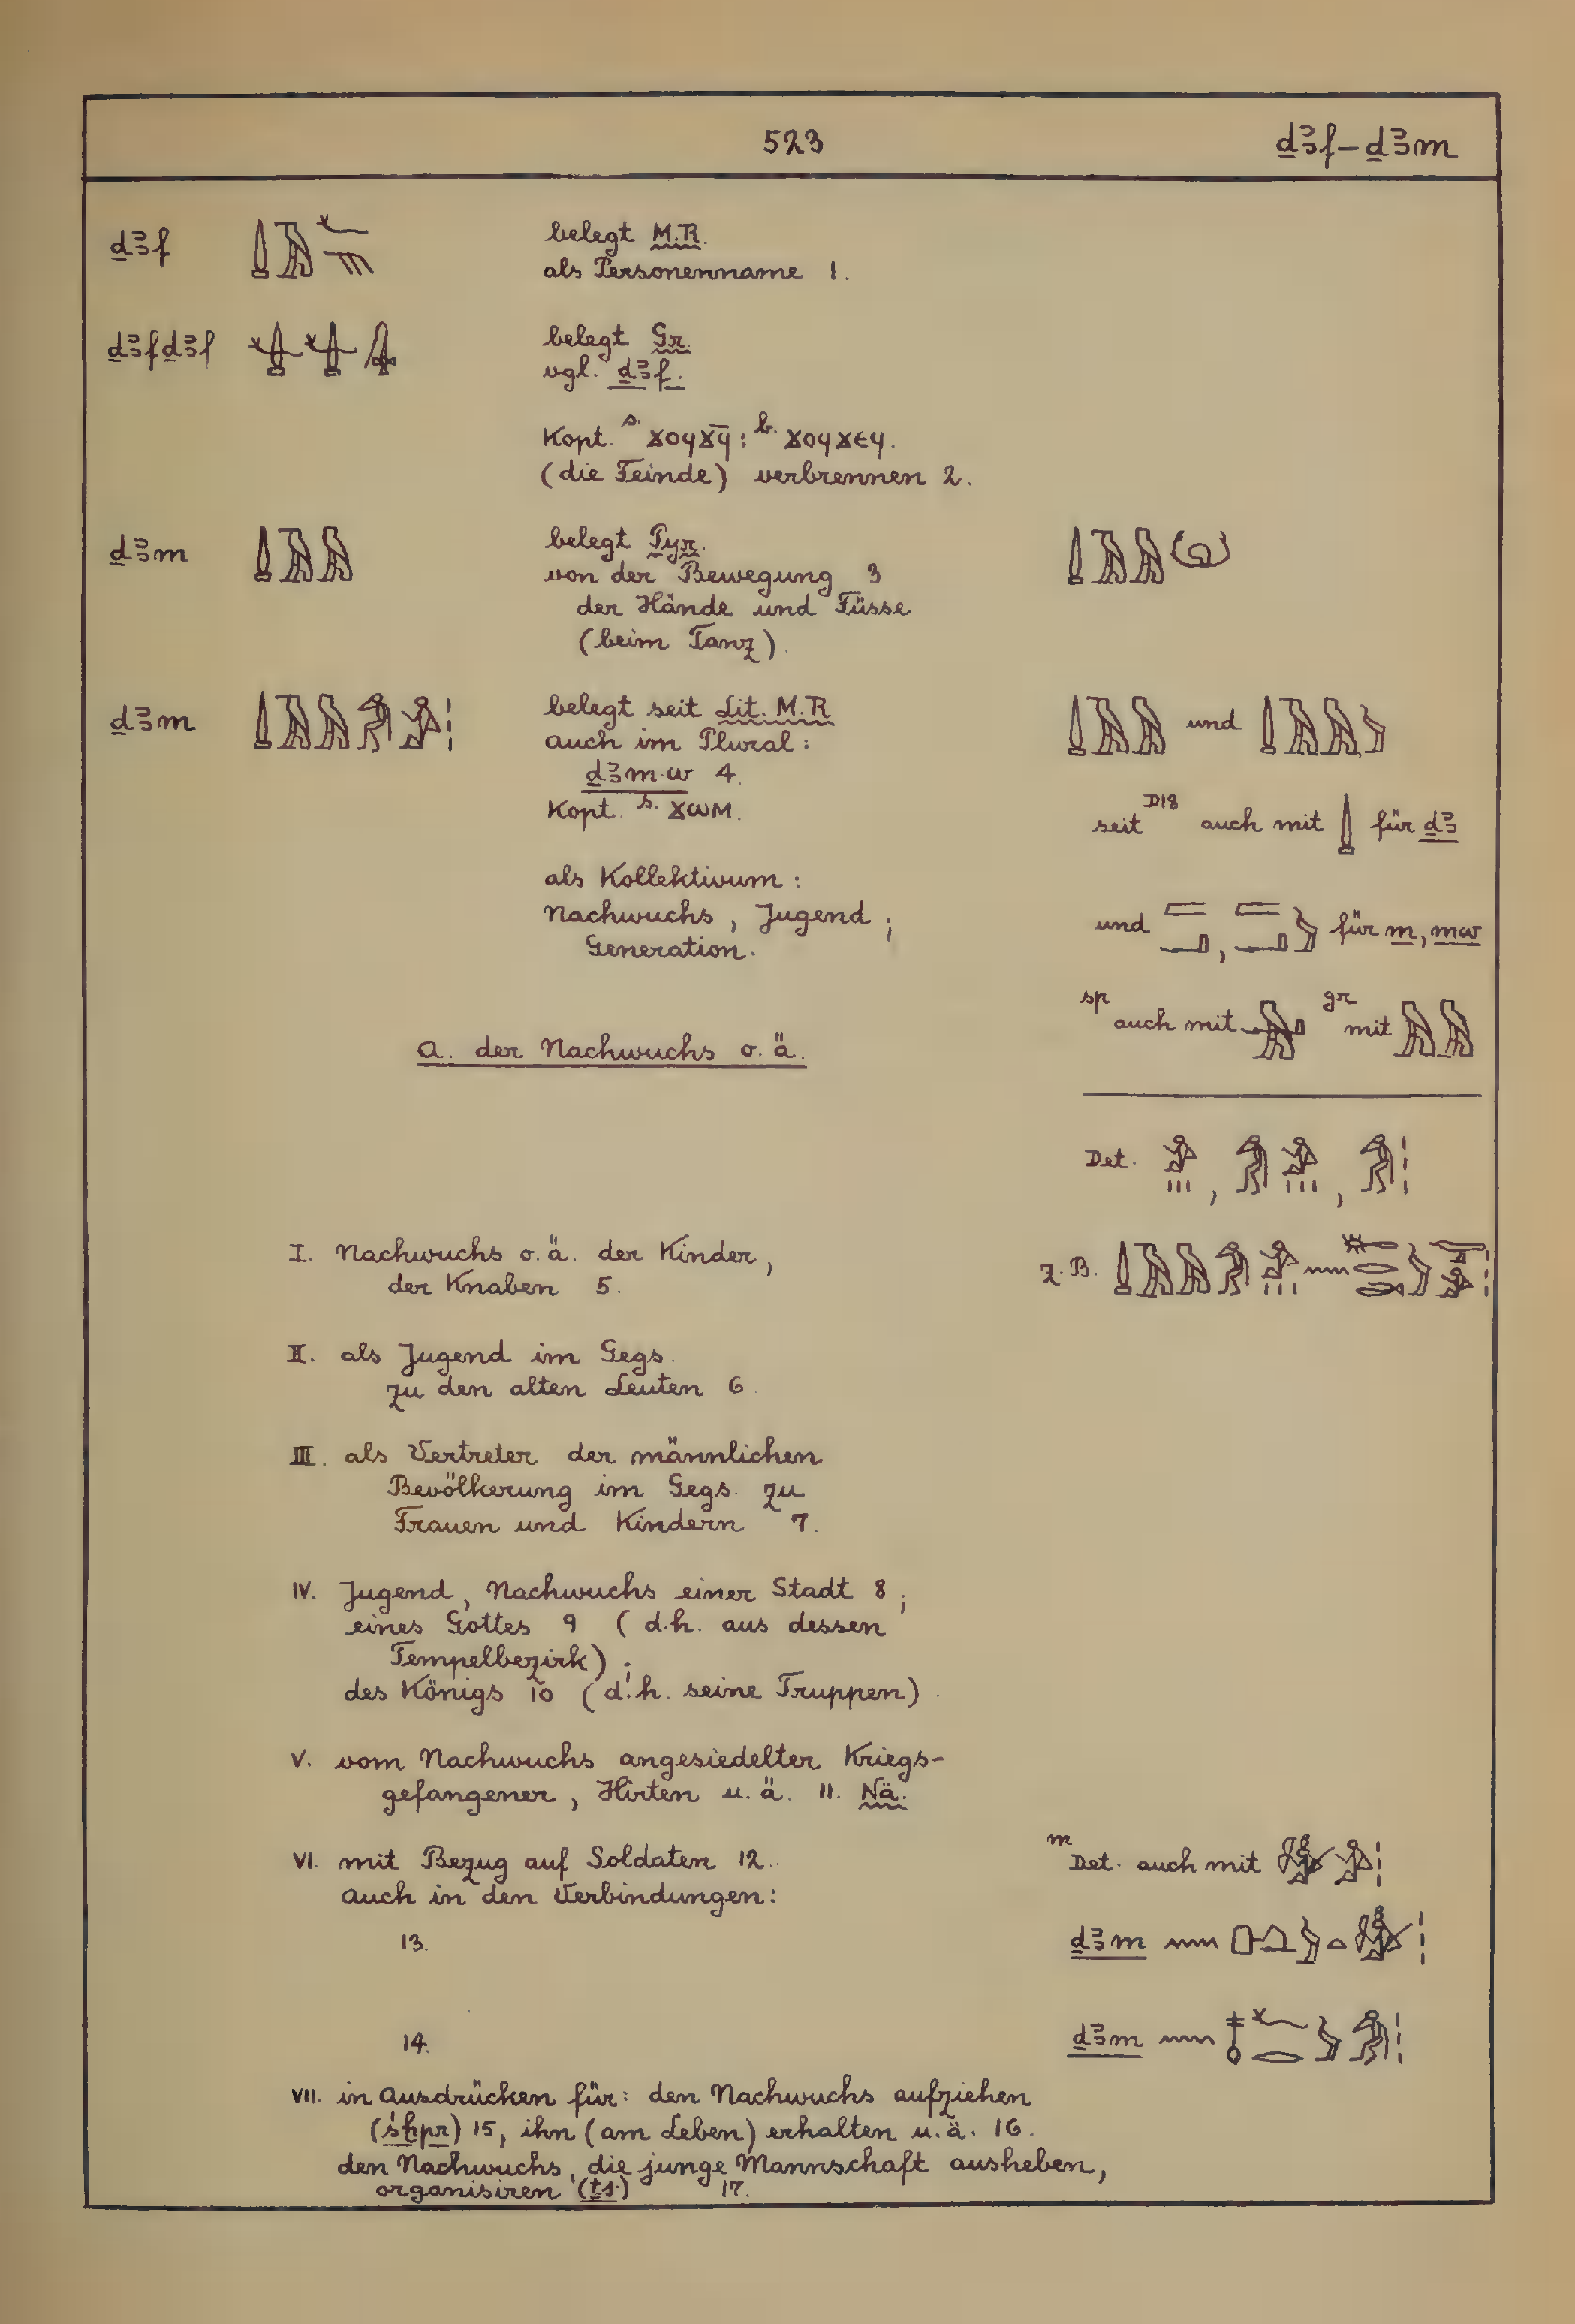 523
ḏꜣf – ḏꜣm
ḏꜣf
belegt M.R.
als Personenname 1.
ḏꜣfḏꜣf
belegt Gr.
vgl. ḏꜣf.
Kopt. s. ϫⲟϥϫϥ̄ : b. ϫⲟϥϫⲉϥ.
(die Feinde) verbrennen 2.
ḏꜣm
belegt Pyr.
von der Bewegung 3
der Hände und Füsse
(beim Tanz).
ḏꜣm
belegt seit Lit. M.R
auch im Plural:
ḏꜣm·w 4.
Kopt. s. ϫⲱⲙ.
als Kollektivum:
Nachwuchs, Jugend;
Generation.
und
seit D18 auch mit für ḏꜣ
und , für m, mw
sp auch mit gr mit
a. der Nachwuchs o. ä.
Det. , ,
I. Nachwuchs o. ä. der Kinder,
der Knaben 5.
z. B.
II. als Jugend im Gegs.
zu den alten Leuten 6.
III. als Vertreter der männlichen
Bevölkerung im Gegs. zu
Frauen und Kindern 7.
IV. Jugend, Nachwuchs einer Stadt 8;
eines Gottes 9 (d.h. aus dessen
Tempelbezirk);
des Königs 10 (d.h. seine Truppen).
V. vom Nachwuchs angesiedelter Kriegs-
gefangener, Hirten u. ä. 11. Nä.
VI. mit Bezug auf Soldaten 12.
auch in den Verbindungen:
m Det. auch mit
13.
ḏꜣm
14.
ḏꜣm
VII. in Ausdrücken für: den Nachwuchs aufziehen
(śḫpr) 15, ihn (am Leben) erhalten u. ä. 16.
den Nachwuchs, die junge Mannschaft ausheben,
organisiren (ṯs) 17.